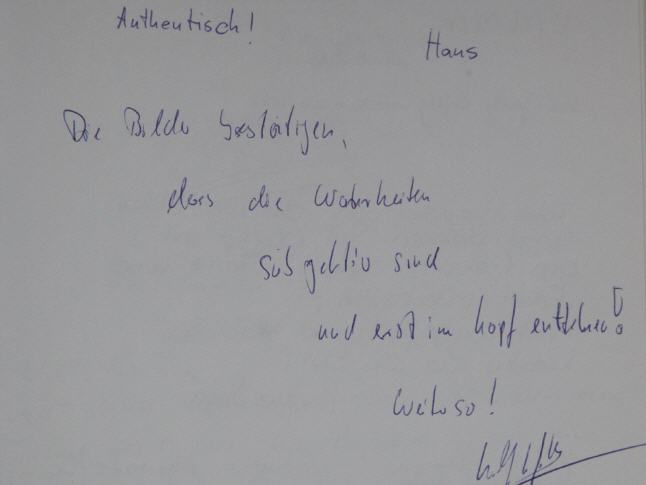 Authentisch!
Hans
Die Bilder bestätigen,
dass die Wahrheiten
subjektiv sind
und erst im Kopf entstehen!
Weiter so!